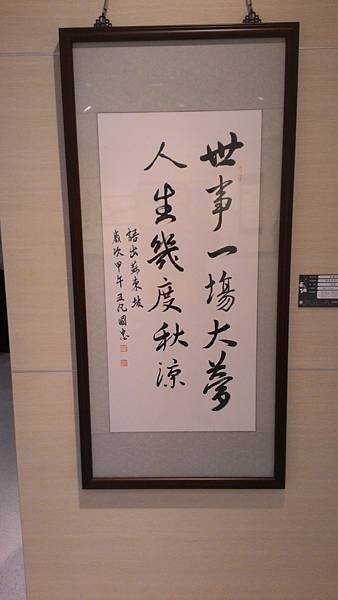 世事一場大夢
人生幾度秋涼
語出蘇東坡
歲次甲午 王凡國忠